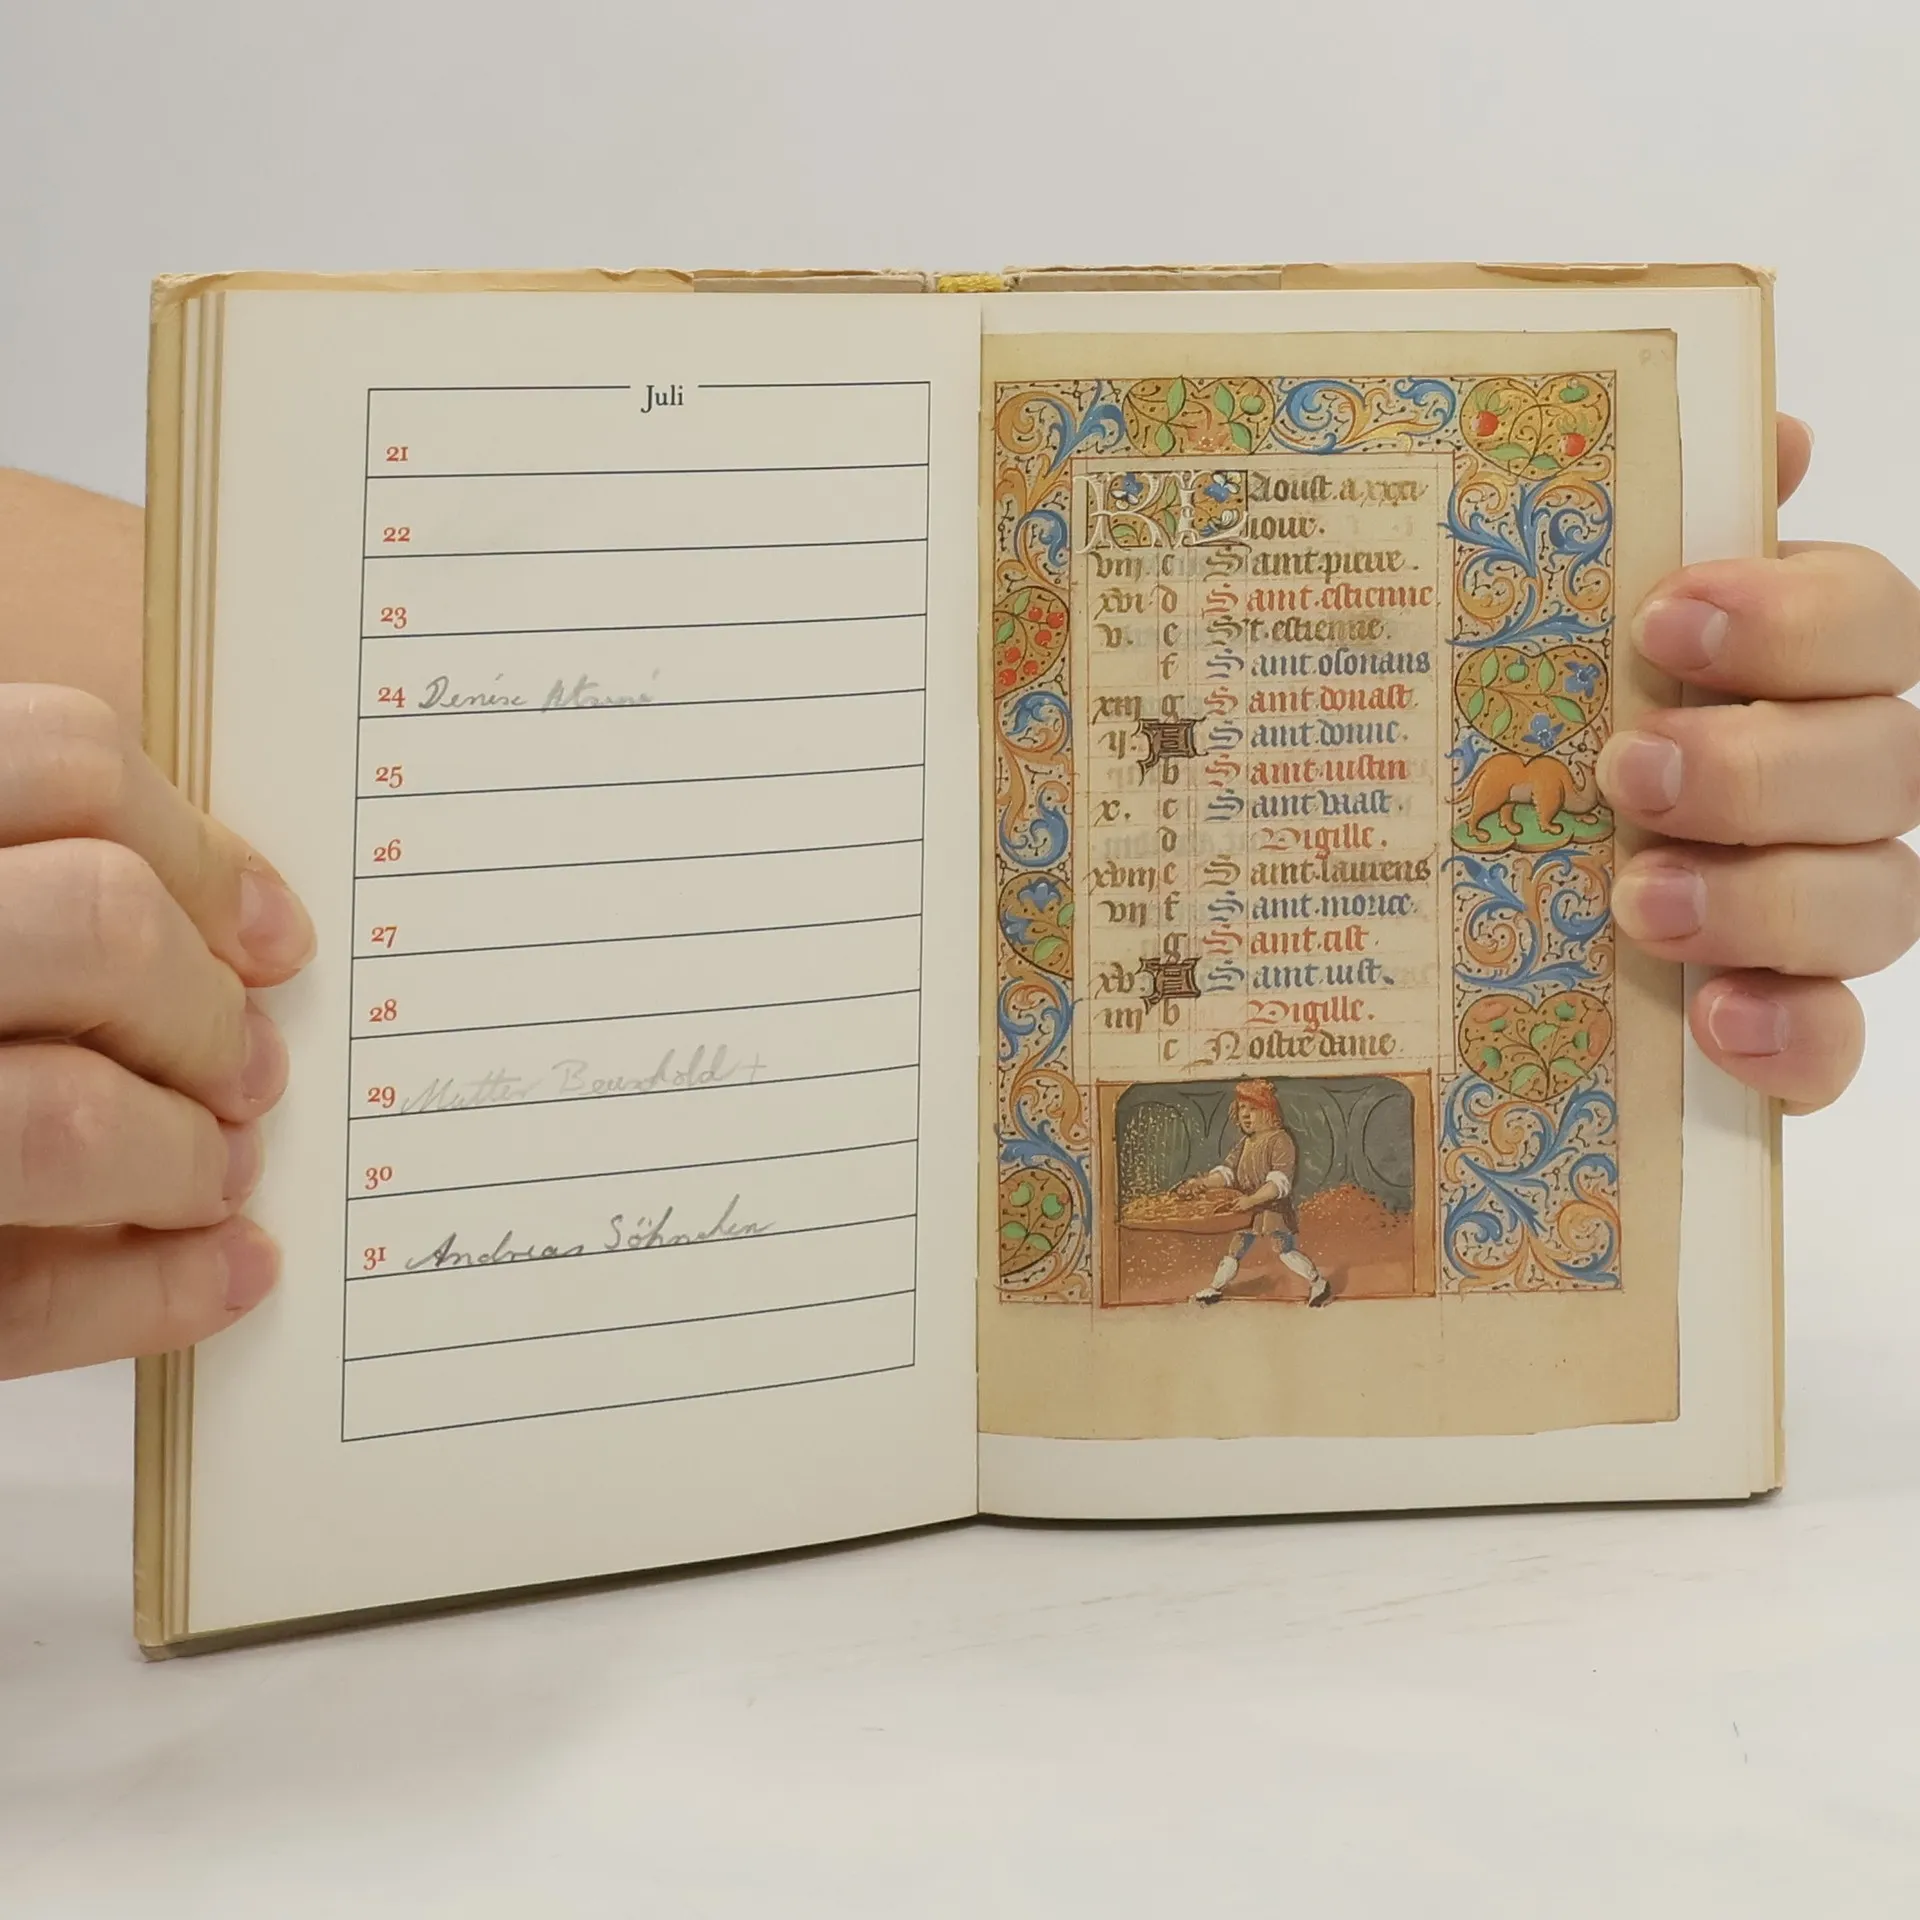 Juli
21
22
23
24 Denise
25
26
27
28
29 Mutter +
30
31 Andreas Söhnchen
KL Aoust. a xxxi
iour.
viij c Saint pierre.
xvi d Saint estienne
v. e St. estienne.
f Saint osouans
xiij g Saint donast.
ij. A Saint donne.
b Saint iustin
x. c Saint vaast.
d Vigille.
xviij e Saint laurens
vij f Saint morice.
g Saint
xv. A Saint iust.
iiij b Vigille.
c Nostre dame.